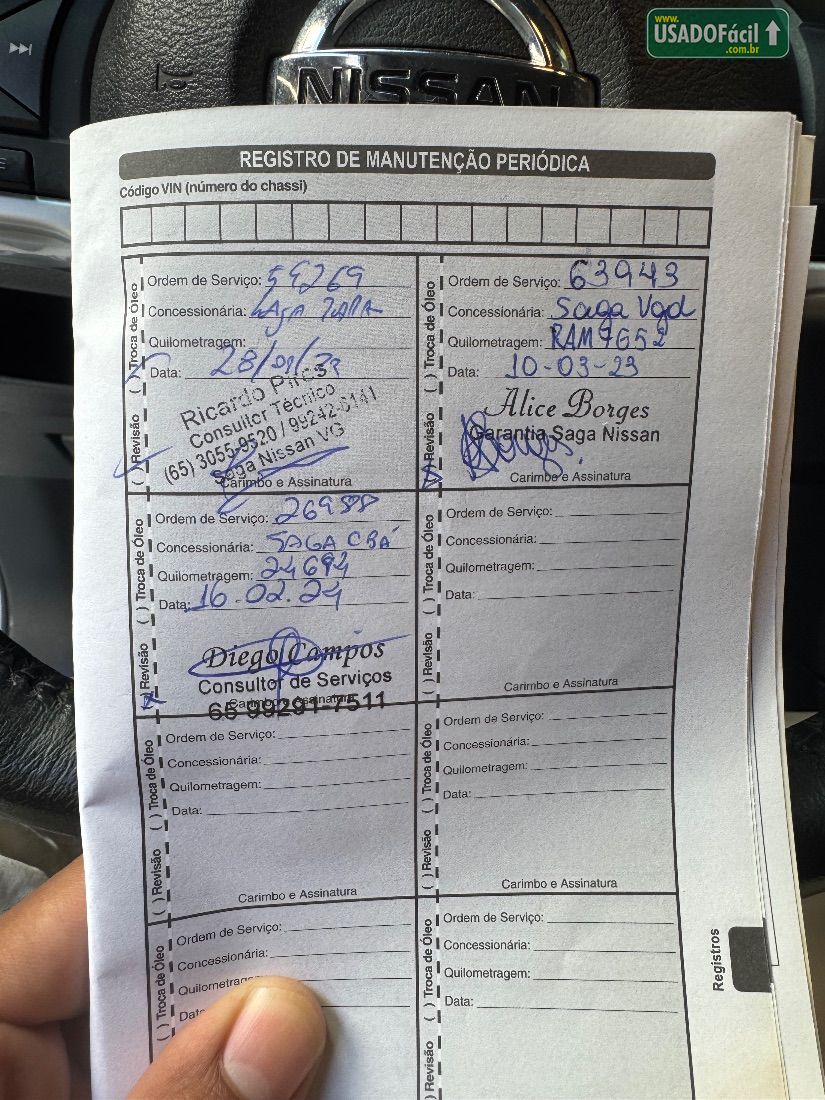 www.
USADOFácil
.com.br
NISSAN
REGISTRO DE MANUTENÇÃO PERIÓDICA
Código VIN (número do chassi)
( ) Troca de Óleo
( ) Revisão
Ordem de Serviço: 59269
Concessionária: Saga
Quilometragem:
Data: 28/01/22
Ricardo Pires
Consultor Técnico
(65) 3055-9520 / 99242-6141
Saga Nissan VG
Carimbo e Assinatura
( ) Troca de Óleo
( ) Revisão
Ordem de Serviço: 63943
Concessionária: Saga Vgd
Quilometragem: RAM7G52
Data: 10-03-23
Alice Borges
Garantia Saga Nissan
Carimbo e Assinatura
( ) Troca de Óleo
( ) Revisão
Ordem de Serviço: 26988
Concessionária: SAGA CBÁ
Quilometragem: 24694
Data: 16.02.24
Diego Campos
Consultor de Serviços
Carimbo e Assinatura
65 99291-7511
( ) Troca de Óleo
( ) Revisão
Ordem de Serviço:
Concessionária:
Quilometragem:
Data:
Carimbo e Assinatura
( ) Troca de Óleo
( ) Revisão
Ordem de Serviço:
Concessionária:
Quilometragem:
Data:
Carimbo e Assinatura
( ) Troca de Óleo
( ) Revisão
Ordem de Serviço:
Concessionária:
Quilometragem:
Data:
Carimbo e Assinatura
( ) Troca de Óleo
Ordem de Serviço:
Concessionária:
Data
( ) Troca de Óleo
Revisão
Ordem de Serviço:
Concessionária:
Quilometragem:
Data:
Registros